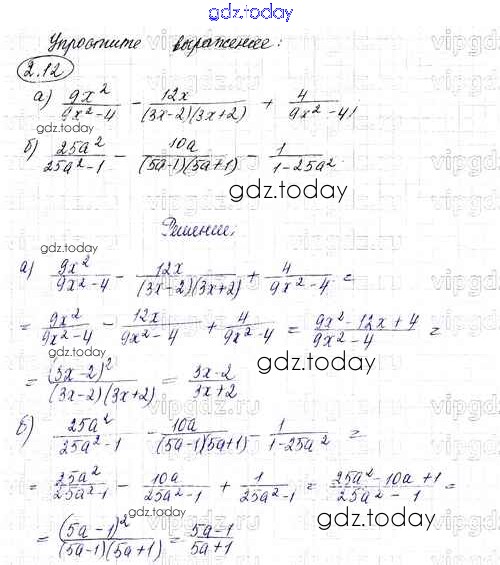 gdz.today
Упростите выражение:
2.12
а) 9x²/(9x²-4) - 12x/((3x-2)(3x+2)) + 4/(9x²-4)
gdz.today
б) 25a²/(25a²-1) - 10a/((5a-1)(5a+1)) - 1/(1-25a²)
gdz.today
Решение.
gdz.today
а) 9x²/(9x²-4) - 12x/((3x-2)(3x+2)) + 4/(9x²-4) =
= 9x²/(9x²-4) - 12x/(9x²-4) + 4/(9x²-4) = (9x²-12x+4)/(9x²-4) =
gdz.today
= (3x-2)²/((3x-2)(3x+2)) = (3x-2)/(3x+2)
б) 25a²/(25a²-1) - 10a/((5a-1)(5a+1)) - 1/(1-25a²) =
gdz.today
= 25a²/(25a²-1) - 10a/(25a²-1) + 1/(25a²-1) = (25a²-10a+1)/(25a²-1) =
gdz.today
= (5a-1)²/((5a-1)(5a+1)) = (5a-1)/(5a+1)
gdz.today